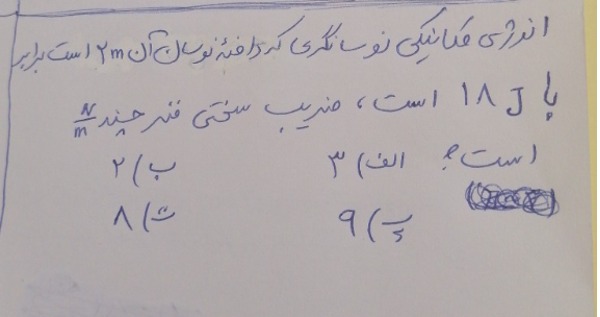 انرژی مکانیکی نوسانگری که دامنهٔ نوسان آن ۲m است برابر
با ۱۸J است، ضریب سختی فنر چند N/m
است؟ الف) ۳ ب) ۲
پ) ۹ ت) ۸